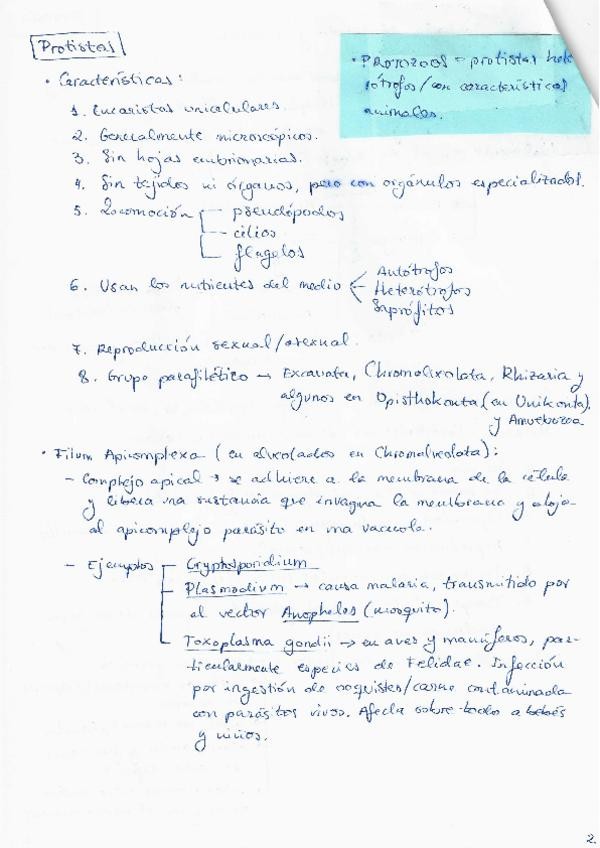 Protistas
• PROTOZOOS = protistas hete
rótrofos/con características
animales.
• Características:
1. Eucariotas unicelulares.
2. Generalmente microscópicos.
3. Sin hojas embrionarias.
4. Sin tejidos ni órganos, pero con orgánulos especializados.
5. Locomoción
pseudópodos
cilios
flagelos
6. Usan los nutrientes del medio
Autótrofos
Heterótrofos
Saprófitos
7. Reproducción sexual/asexual.
8. Grupo parafilético → Excavata, Chromalveolata, Rhizaria y
algunos en Opisthokonta (en Unikonta).
y Amoebozoa
• Filum Apicomplexa (en alveolados en Chromalveolata):
– Complejo apical → se adhiere a la membrana de la célula
y libera una sustancia que invagina la membrana y aloja
al apicomplejo parásito en una vacuola.
– Ejemplos
Cryptosporidium
Plasmodium → causa malaria, transmitido por
al vector Anopheles (mosquito).
Toxoplasma gondii → en aves y mamíferos, par-
ticularmente especies de Felidae. Infección
por ingestión de ooquistes/carne contaminada
con parásitos vivos. Afecta sobre todo a bebés
y niños.
2.